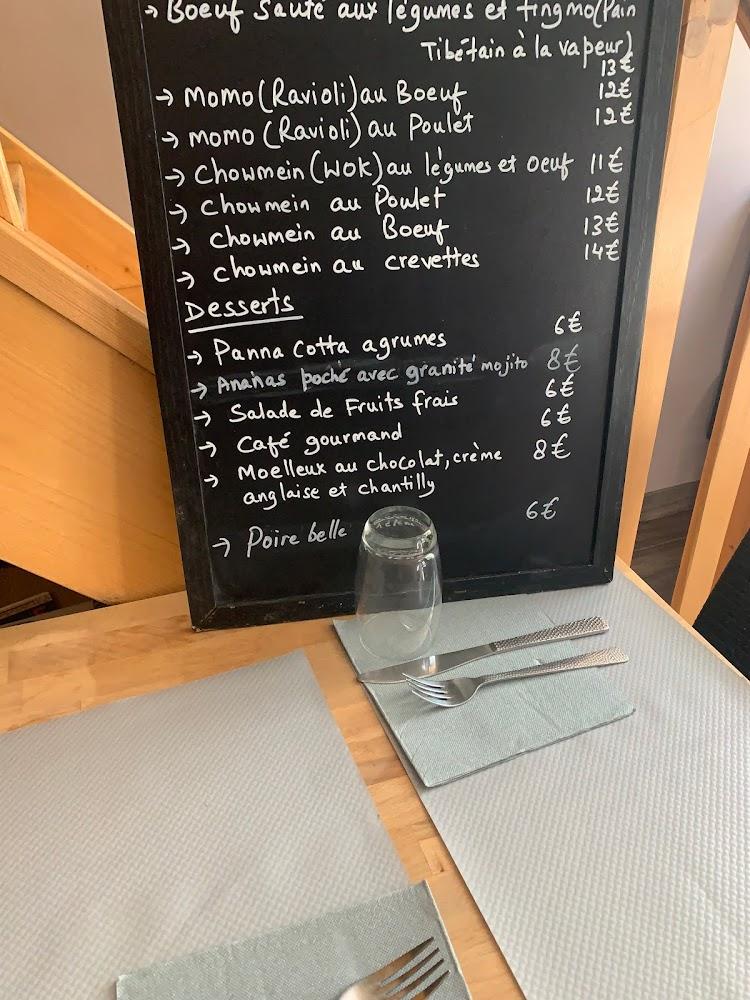 → Boeuf sauté aux légumes et tingmo(Pain
Tibétain à la vapeur)
13€
→ Momo(Ravioli)au Boeuf 12€
→ momo(Ravioli)au Poulet 12€
→ Chowmein(Wok)au légumes et oeuf 11€
→ Chowmein au Poulet 12€
→ Chowmein au Boeuf 13€
→ Chowmein au crevettes 14€
Desserts
→ Panna Cotta agrumes 6€
→ Ananas poché avec granité mojito 8€
→ Salade de Fruits frais 6€
→ Café gourmand 6€
→ Moelleux au chocolat, crème 8€
anglaise et chantilly
→ Poire belle 6€